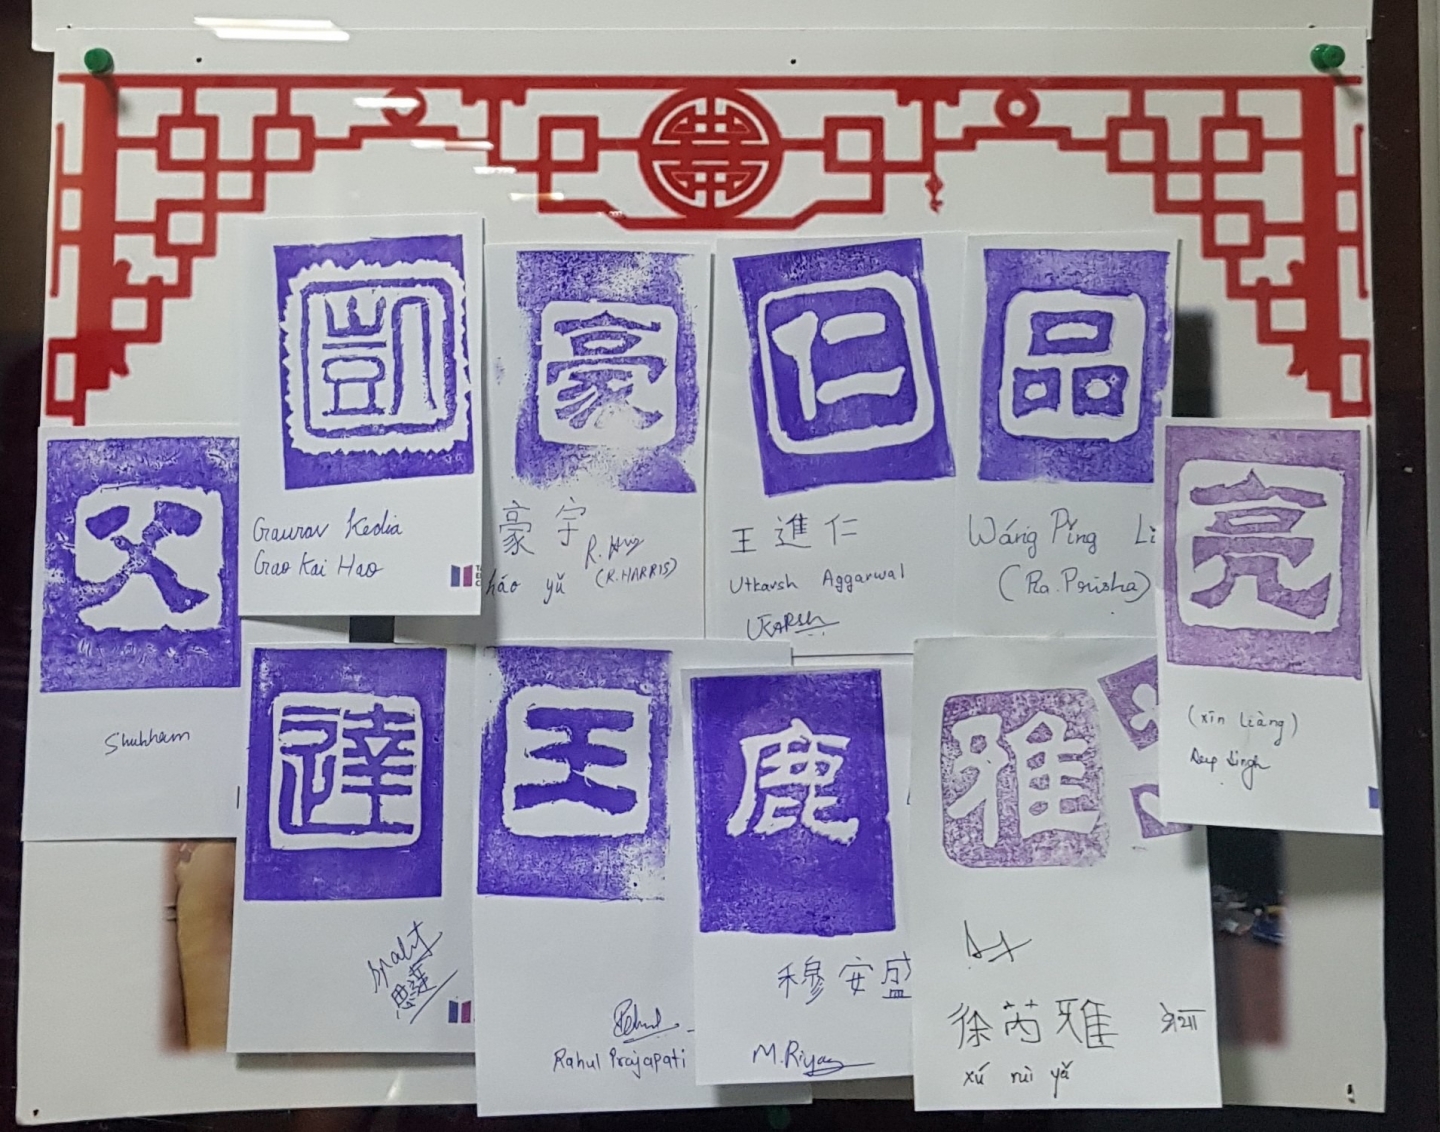 凱
Gaurav Kedia
Gao Kai Hao
豪
豪宇
R. (R.HARRIS)
háo yǔ
仁
王進仁
Utkarsh Aggarwal
UTKARSH
品
Wáng Pǐng Li
(Ra. Prisha)
亮
(xīn Liàng)
Deep Singh
父
Shubham
達
思達
王
Rahul Prajapati
鹿
穆安盛
M. Riyaz
雅
徐芮雅
xú ruì yǎ